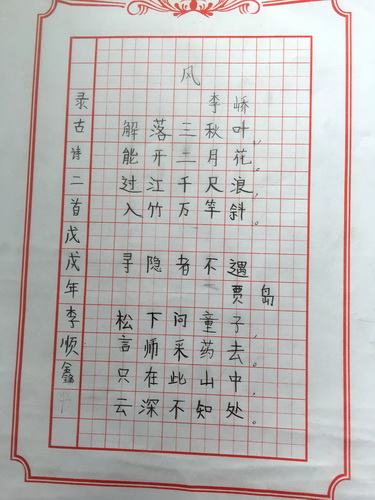 风
李峤
解落三秋叶，
能开二月花。
过江千尺浪，
入竹万竿斜。
寻隐者不遇
贾岛
松下问童子，
言师采药去。
只在此山中，
云深不知处。
录古诗二首戊戌年李顺鑫